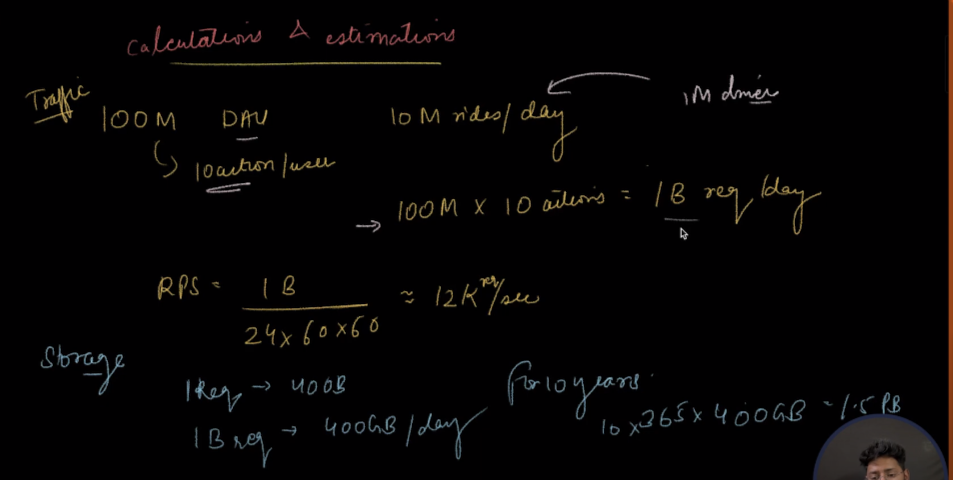 Calculations & estimations
Traffic
100M DAU
10M rides/day
1M driver
10 action/user
→ 100M x 10 actions = 1B req/day
RPS = 1B / 24x60x60 ≈ 12K req/sec
Storage
1 Req → 400B
1 B req → 400GB/day
For 10 years.
10x365x400GB = 1.5 PB